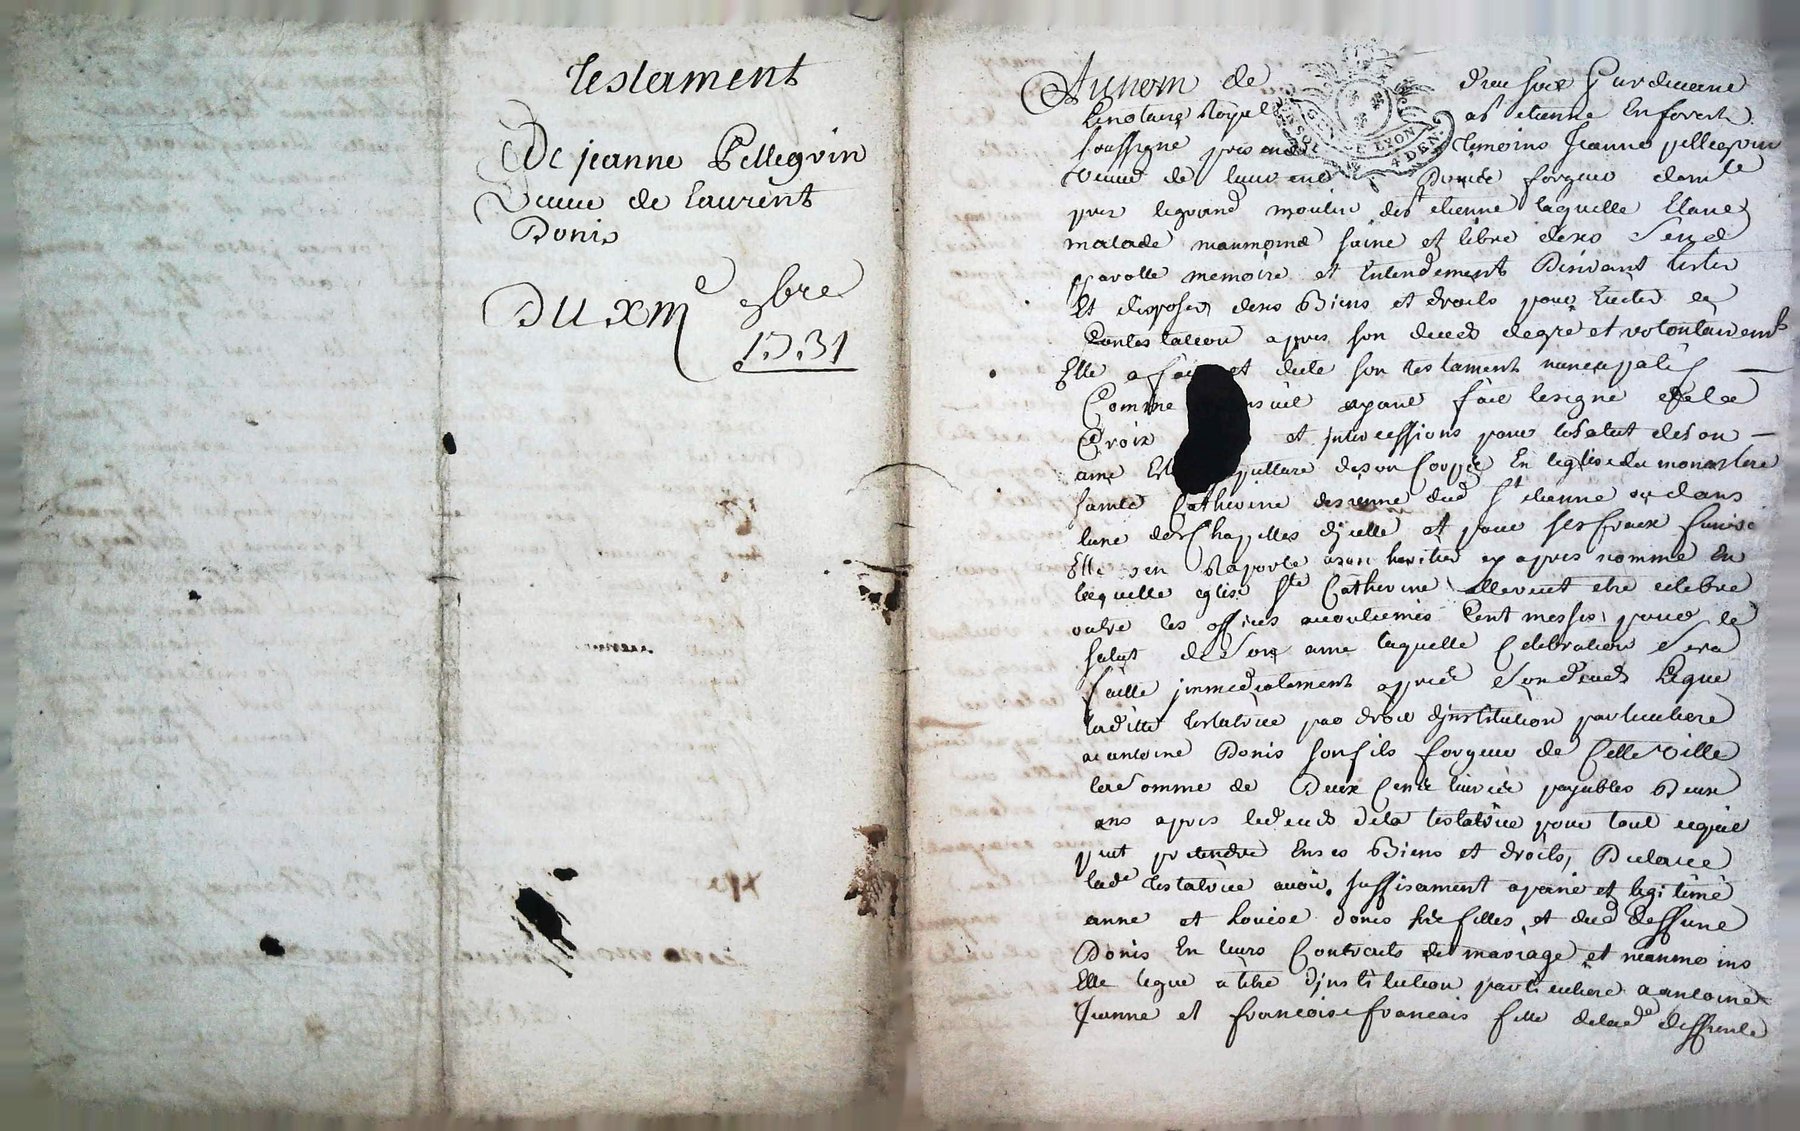 Testament
De jeanne Pellegrin
Veuve de Laurent
Donis
Du xme 9bre
1731
Au nom de dieu soit Pardevant
Le notaire Royal a st etienne En forest
soussigné presents temoins Jeanne pellegrin
veuve de laurent Donis forgeur demte
pres le grand moulin dest etienne laquelle Etant
malade neanmoins saine et libre de ses sens
parolle memoire et Entendement Desirant tester
Et disposer de ses Biens et droits pour Eviter
Contestation apres son deces de gré et volontairemt
Elle a fait et dicté son testament nuncupatif
Comme sensuit ayant fait le signe de la
Croix et intercessions pour le salut de son
ame Et sepulture de son Corps En leglise du monastere
sainte Catherine de sienne dud st etienne ou dans
lune des Chapelles dycelle et pour ses fraix
Elle sen Raporte a son heritier cy apres nommé En
laquelle eglise ste Catherine elle veut etre celebré
outre les offices acoutumés Cent messes pour le
salut de son ame laquelle Celebration sera
faitte immediatement apres son deces Legue
laditte testatrice par droit dinstitution particuliere
a antoine Donis son fils forgeur de Cette ville
la somme de Deux Cents livres payables Deux
ans apres le deces de la testatrice pour tout ce quil
peut pretendre En ses Biens et droits, Declare
lade testatrice avoir suffisament apané et legitimé
anne et Louise donis ses filles, et dud deffunt
Donis En leurs Contracts de mariage, et neanmoins
Elle legue a titre dinstitution particuliere a antoine
Jeanne et francoise francois fille de lade deffunte
GEN DE LYON
4 DEN.